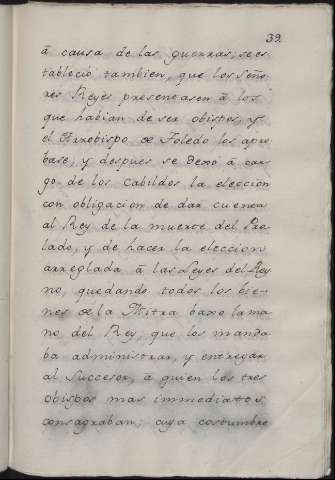 39.
â causa de las guerras, se es
tableció tambien, que los Seño
res Reyes presentasen â los
que habian de ser obispos, y
el Arzobispo de Toledo los apro
base, y despues se dexó â car
go de los Cabildos la eleccion
con obligacion de dar cuenta
al Rey de la muerte del Pre
lado, y de hacer la eleccion
arreglada â las Leyes del Rey
no, quedando todos los bie-
nes de la Mitra baxo la ma
no del Rey, que los manda
ba administrar, y entregar
al Succesor, â quien los tres
obispos mas immediatos,
consagraban; cuya costumbre